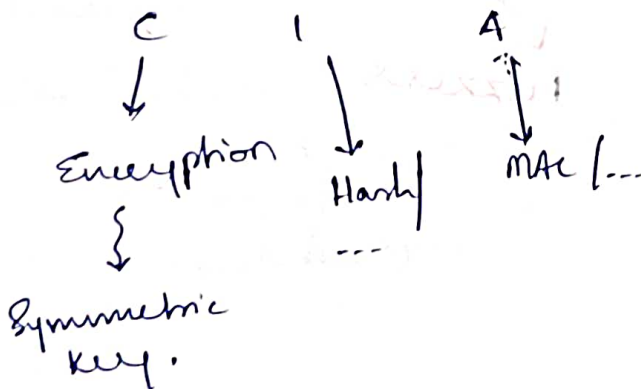 C I A
Encryption Hash/ MAC/...
....
Symmetric
key.